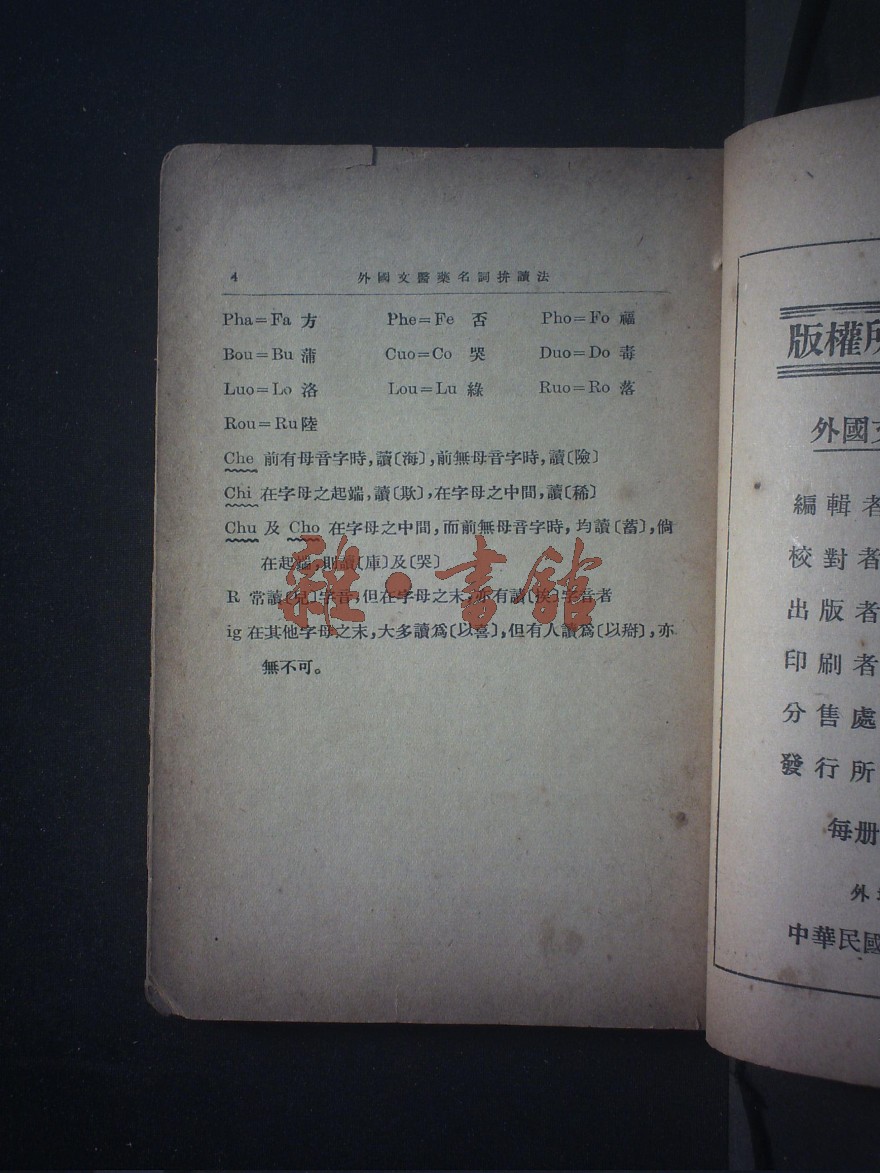 4 外國文醫藥名詞拚讀法
Pha=Fa 方 Phe=Fe 否 Pho=Fo 福
Bou=Bu 蒲 Cuo=Co 哭 Duo=Do 毒
Luo=Lo 洛 Lou=Lu 綠 Ruo=Ro 落
Rou=Ru 陸
Che 前有母音字時,讀〔海〕,前無母音字時,讀〔險〕
Chi 在字母之起端,讀〔欺〕,在字母之中間,讀〔稀〕
Chu 及 Cho 在字母之中間,而前無母音字時,均讀〔蓄〕,倘
在起端,則讀〔庫〕及〔哭〕
R 常讀〔兒〕字音,但在字母之末,亦有讀字音者
ig 在其他字母之末,大多讀爲〔以喜〕,但有人讀爲〔以搿〕,亦
無不可。
雜·書館
版權所
外國文
編輯者
校對者
出版者
印刷者
分售處
發行所
每册
外
中華民國